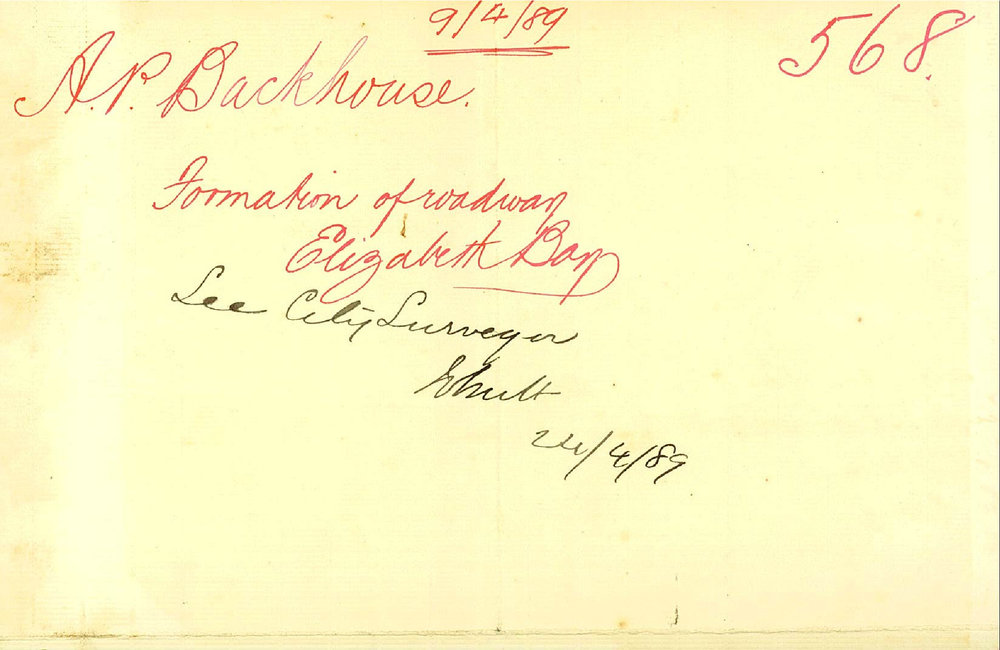 9/4/89
568.
A.P. Backhouse.
Formation of roadway
Elizabeth Bay
See City Surveyor
24/4/89